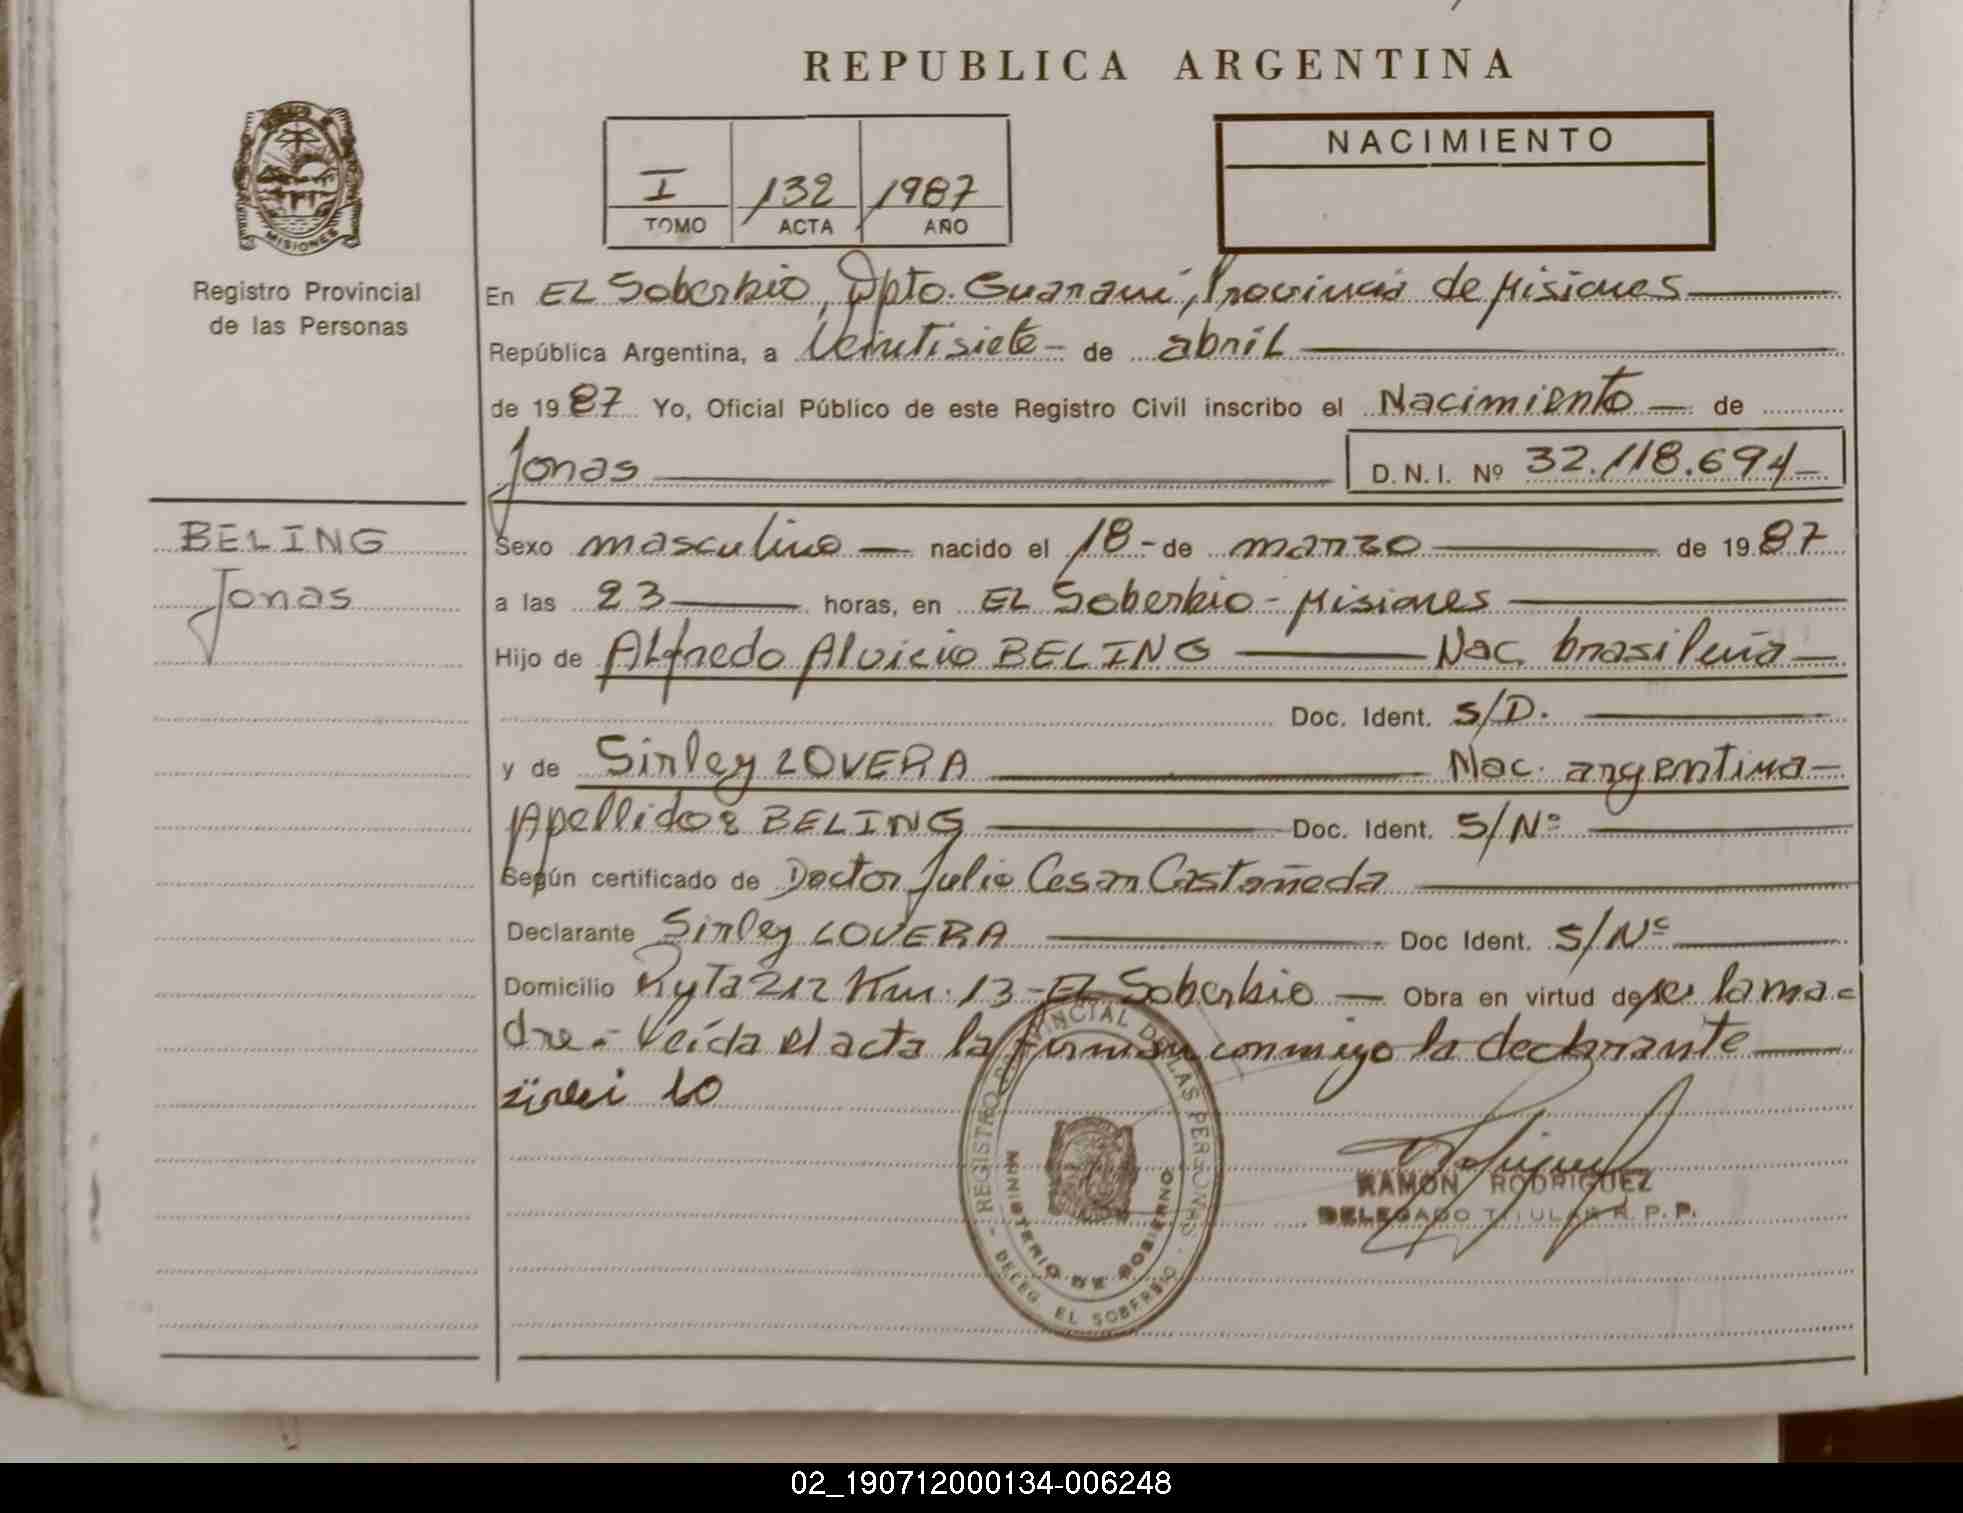 REPUBLICA ARGENTINA
I 132 1987
TOMO ACTA AÑO
NACIMIENTO
MISIONES
Registro Provincial
de las Personas
En EL Soberbio, Dpto. Guaraní, Provincia de Misiones
República Argentina, a Veintisiete - de abril
de 1987 Yo, Oficial Público de este Registro Civil inscribo el Nacimiento — de
Jonas D.N.I. Nº 32.118.694
BELING
Jonas
Sexo masculino — nacido el 18 - de marzo de 1987
a las 23 horas, en EL Soberbio - Misiones
Hijo de Alfredo Aloicio BELING Nac. brasileña
Doc. Ident. S/D.
y de Sirley LOVERA Nac. argentina
Apellido: BELING Doc. Ident. S/Nº
Según certificado de Doctor Julio Cesar Castañeda
Declarante Sirley LOVERA Doc Ident. S/Nº
Domicilio Ruta 212 Km. 13 - EL Soberbio — Obra en virtud de ser la ma-
dre.- Leída el acta la firman conmigo la declarante
REGISTRO PROVINCIAL DE LAS PERSONAS
MINISTERIO DE GOBIERNO
DELEG. EL SOBERBIO
RAMON RODRIGUEZ
DELEGADO TITULAR R. P. P.
02_190712000134-006248